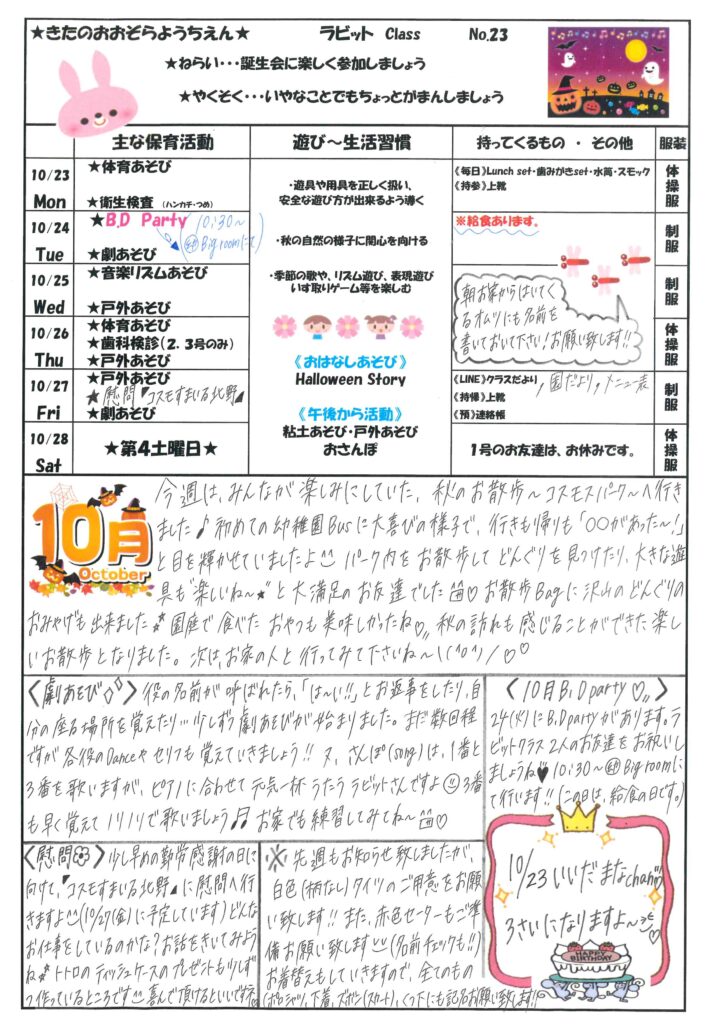 ★きたのおおぞらようちえん★ ラビット Class No.23
★ねらい･･･誕生会に楽しく参加しましょう
★やくそく･･･いやなことでもちょっとがまんしましょう
主な保育活動 遊び～生活習慣 持ってくるもの ・ その他 服装
10/23 Mon
★体育あそび
★衛生検査 (ハンカチ・つめ)
《毎日》Lunch set・歯みがきset・水筒・スモック
《持参》上靴
体操服
10/24 Tue
★B.D Party (10:30～ 於Big roomにて)
★劇あそび
※給食あります。
制服
10/25 Wed
★音楽リズムあそび
★戸外あそび
制服
10/26 Thu
★体育あそび
★歯科検診(2．3号のみ)
★戸外あそび
体操服
10/27 Fri
★戸外あそび
★慰問『コスモすまいる北野』
★劇あそび
《LINE》クラスだより，園だより，メニュー表
《持帰》上靴
《預》連絡帳
制服
10/28 Sat
★第４土曜日★
１号のお友達は、お休みです。
体操服
・遊具や用具を正しく扱い、
安全な遊び方が出来るよう導く
・秋の自然の様子に関心を向ける
・季節の歌や、リズム遊び、表現遊び
いす取りゲーム等を楽しむ
《おはなしあそび》
Halloween Story
《午後から活動》
粘土あそび・戸外あそび
おさんぽ
朝お家からはいてく
るオムツにも名前を
書いておいて下さい！お願い致します!!
10月
October
今週は、みんなが楽しみにしていた、秋のお散歩～コスモスパーク～へ行き
ました♪初めての幼稚園Busに大喜びの様子で、行きも帰りも「〇〇があった～！」
と目を輝かせていましたよ パーク内をお散歩してどんぐりを見つけたり、大きな遊
具も"楽しいね～★"と大満足のお友達でした♡お散歩Bagに沢山のどんぐりの
おみやげも出来ました 園庭で食べたおやつも美味しかったね♡秋の訪れも感じることができた楽し
いお散歩となりました。次は、お家の人と行ってみて下さいね～＼(^o^)／♡♡
〈劇あそび〉役の名前が呼ばれたら、「は～い!!」とお返事をしたり、自
分の座る場所を覚えたり…少しずつ劇あそびが始まりました。まだ数回程
ですが各役のDanceやセリフも覚えていきましょう!! 又、さんぽ(song)は、1番と
3番を歌いますが、ピアノに合わせて元気一杯うたうラビットさんですよ 3番
も早く覚えてノリノリで歌いましょう♪♬お家でも練習してみてね～♡
〈10月B.D party♡〉
24(火)にB.D partyがあります。ラ
ビットクラス2人のお友達をお祝いし
ましょうね♥10:30～於Big roomに
て行います!!(この日は、給食の日です。)
10/23 いいだまなchanが
3さいになりますよ～♡
HAPPY BIRTHDAY
〈慰問〉少し早めの勤労感謝の日に
向けて、『コスモすまいる北野』に慰問へ行
きますよ(10/27(金)に予定しています)どんな
お仕事をしているのかな？お話をきいてみよう
ね トトロのティッシュケースのプレゼントも少しず
つ作っているところです 喜んで頂けるといいですネ
※先週もお知らせ致しましたが、
白色(柄なし)タイツのご用意をお願
い致します!! また、赤色セーターもご準
備お願い致します(名前チェックも!!)
お着替えもしていきますので、全てのもの
(ポロシャツ、下着、ズボン(スカート)、くつ下)にも記名お願い致します!!